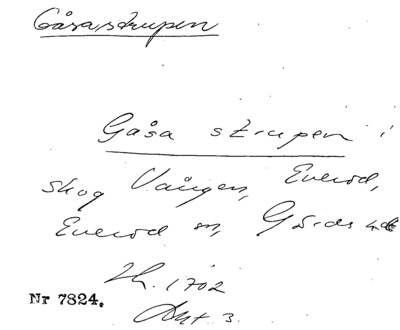 Gåsastrupen
Gåsa strupen i
skog Vången, Everöd,
Everöd sn, Gärds hd
Lh. 1702
Akt 3.
Nr 7824.